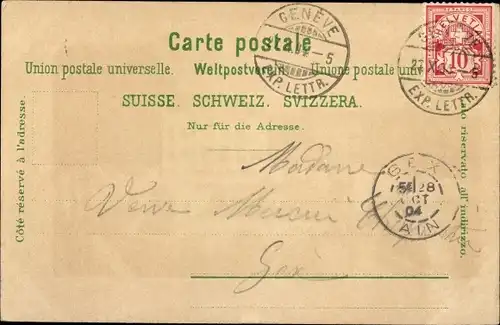 Carte postale.
Union postale universelle. Weltpostverein. Unione postale
SUISSE. SCHWEIZ. SVIZZERA.
Nur für die Adresse.
Côté réservé à l'adresse.
lato riservato all'indirizzo.
HELVETIA
10
GENÈVE
5
EXP. LETTR.
EXP. LETTR.
GEX
28
OCT
04
AIN
Madame
Veuve
Gex